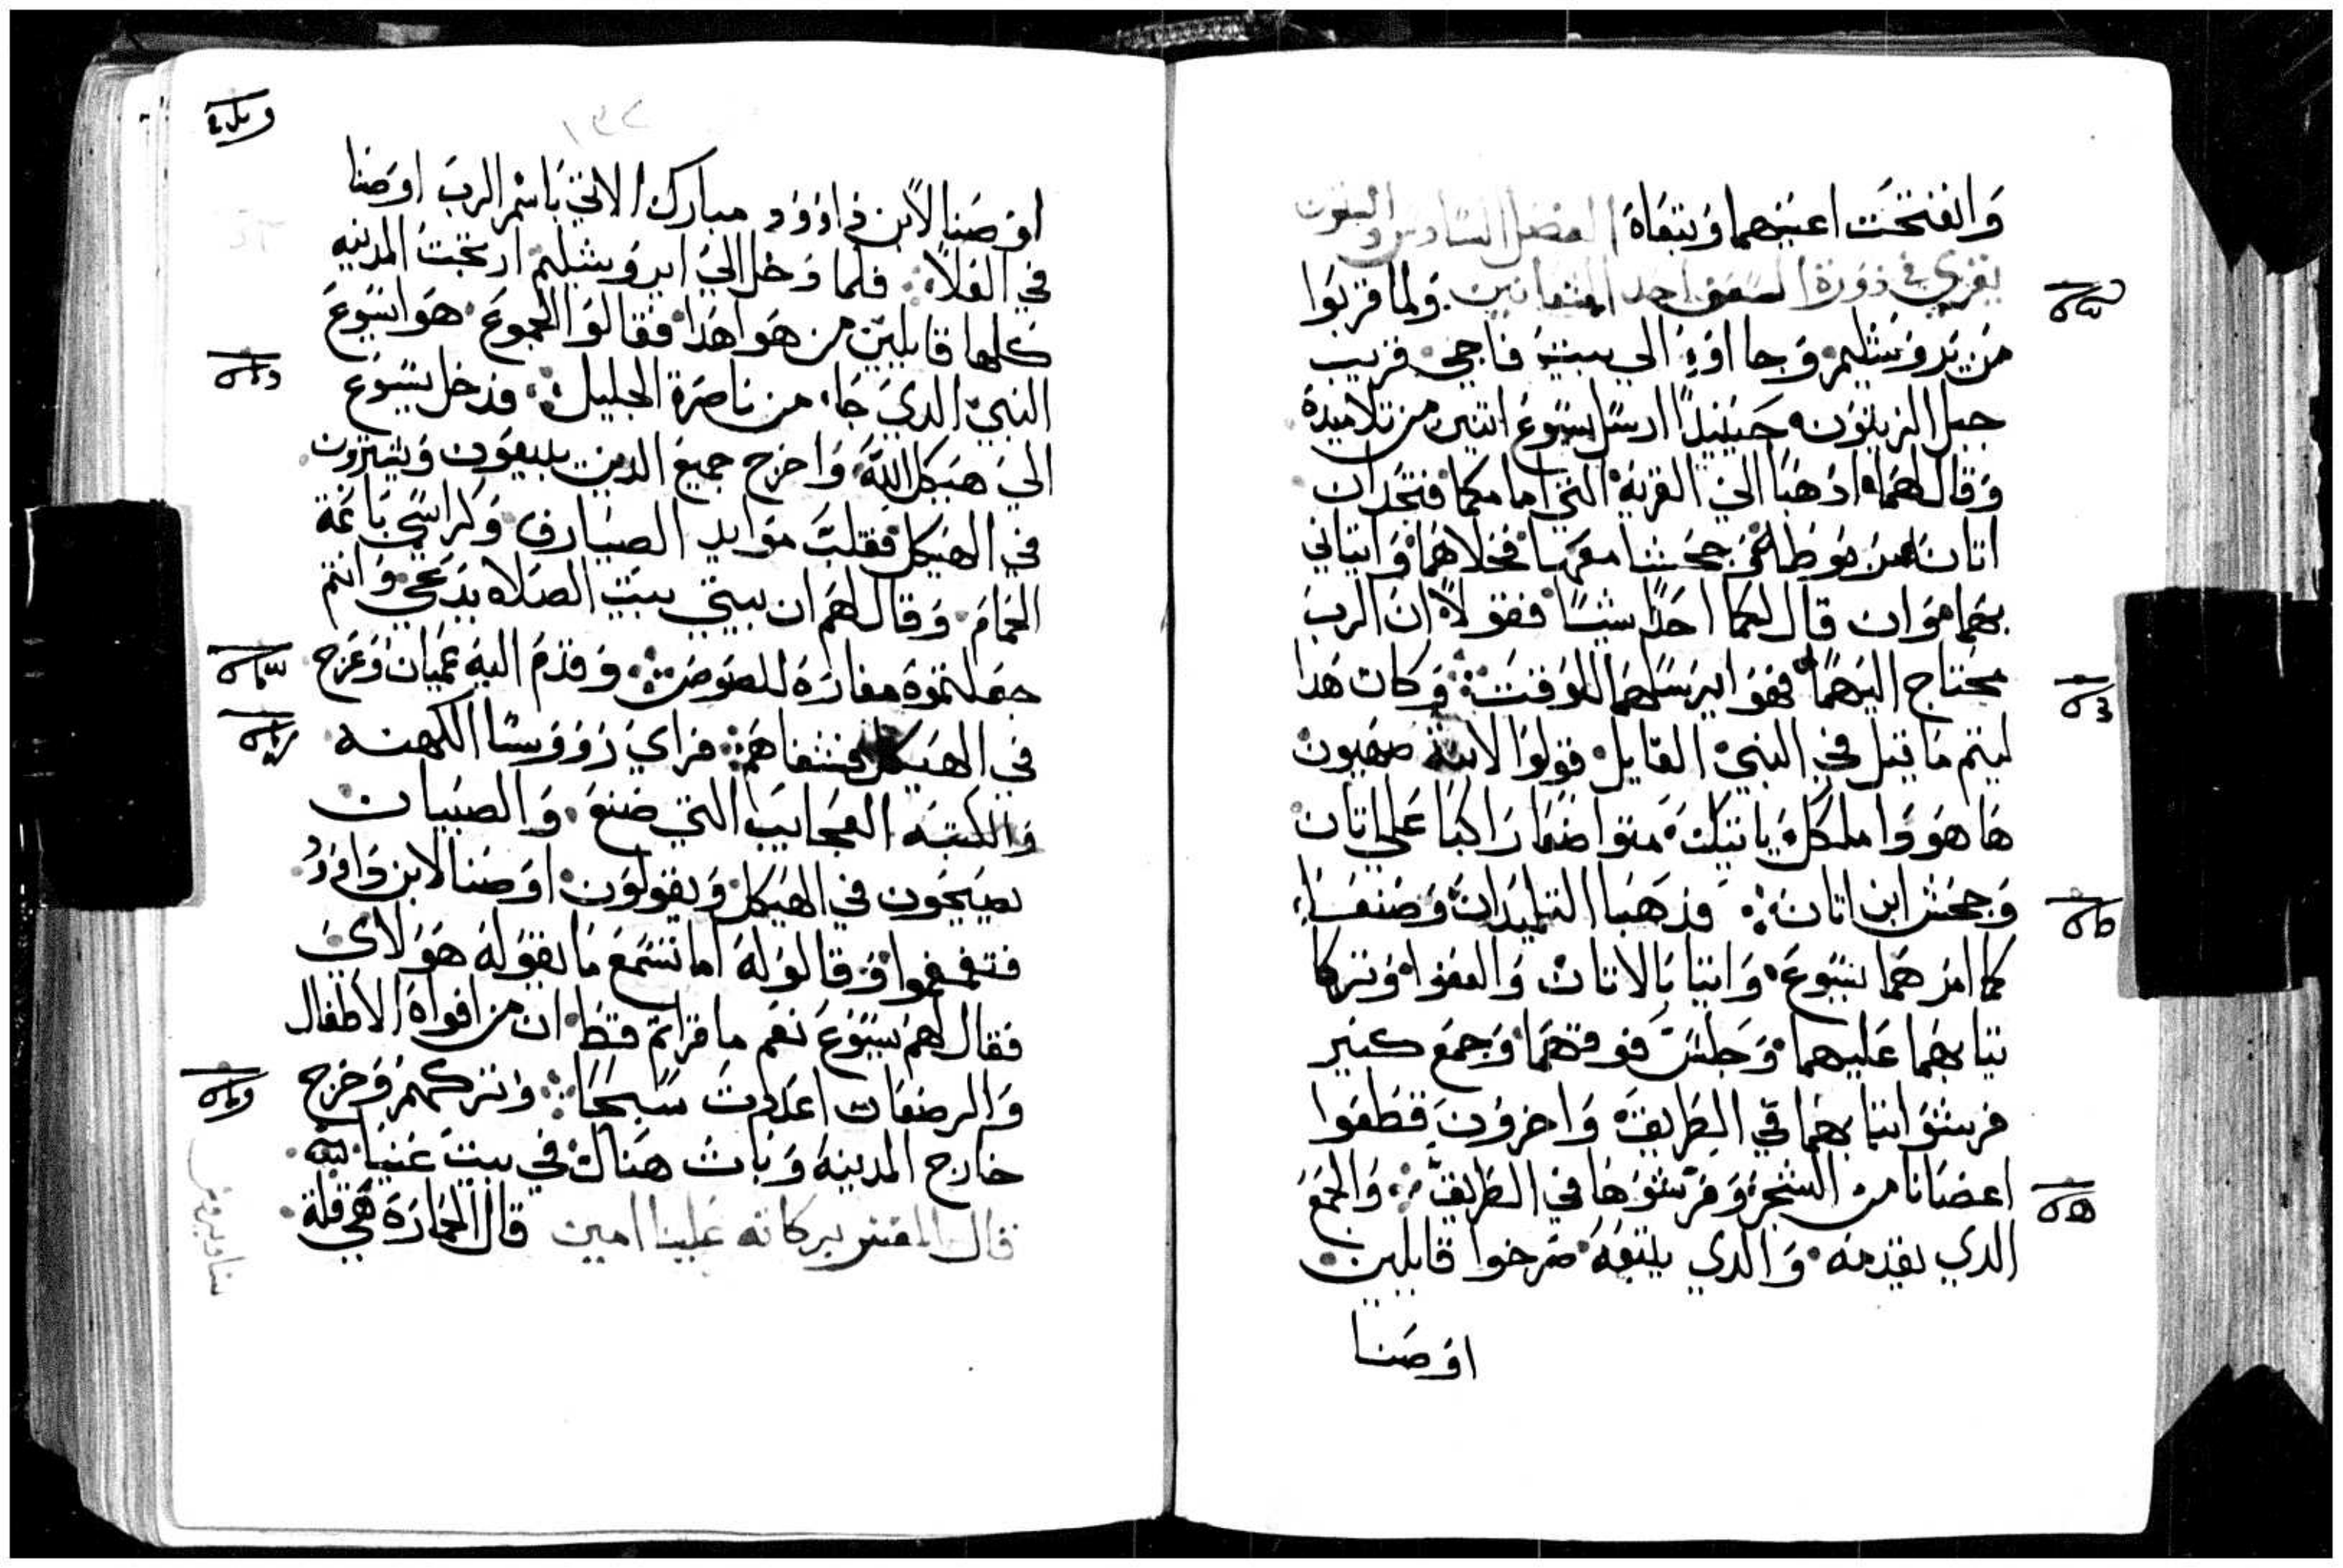 وانفتحت اعينهما وتبعاه الفصل السادس والستون
يقرى في دورة احد الشعانين ولما قربوا
من يروشليم وجااوۥ الي بيت فاجي قريب
جبل الزيتون حينيدًا ارسل يسوع اتنين من تلاميدة
وقال لهما ادهبا الي القرية التي امامكما فتجدان
اتان مربوطا جحشا معها فحلاهما وايتاني
بهما وان قال لكما احدًا شيئًا فقولا ان الرب
محتاج اليهما فهو ايرسلهما للوقت وكان هدا
ليتم ما قيل في النبي القايل قولوا لابنة صهيون
ها هو وا ملكك ياتيك متواضعا راكبا علي اتان
وجحش ابن اتان فدهبا التلميدان وصنعا
كما امرهما يسوع واتيا بالاتان والعفوا وتركا
تيابهما عليهما وجلس فوقهما وجمع كتير
فرشوا تيابهما في الطريق واخرون قطعوا
اعصانا من الشجر وفرشوها في الطريق والجمع
الدي يقدمه والدي يتبعه صرخوا قايلين
اوصنا
اوصنا لابن داوود مبارك الاتي باسم الرب اوصنا
في العلا فلما دخل الي ايروشليم ارتجت المدينه
كلها قايلين من هو اهدا فقالوا الجموع هو ايسوع
النبي الدي جا من ناصرة الجليل فدخل يسوع
الي هيكل الله واخرج جميع الدين يبيعون ويشترون
في الهيكل فقلب موايد الصيارف وكراسي باعة
الحمام وقال لهم ان بيتي بيت الصلاه يدعي وانتم
جعلتموة مغارة للصوص وقدم اليه عميان وعرج
في الهيكل فشفاهم فراي رووسا الكهنه
والكتبه العجايب التي صنع والصبيان
يصيحون في الهيكل ويقولون اوصنا لابن داوود
فتقمقموا وقالو له اما تسمع ما يقوله هولاي
فقال لهم يسوع نعم ما قراتم قط ان من افواة الاطفال
والرضعان اعددت سبحا وتركهم وخرج
خارج المدينه وبات هناك في بيت عنيا
قال المفسر بركاته علينا امين قال الحمارة هي قلة